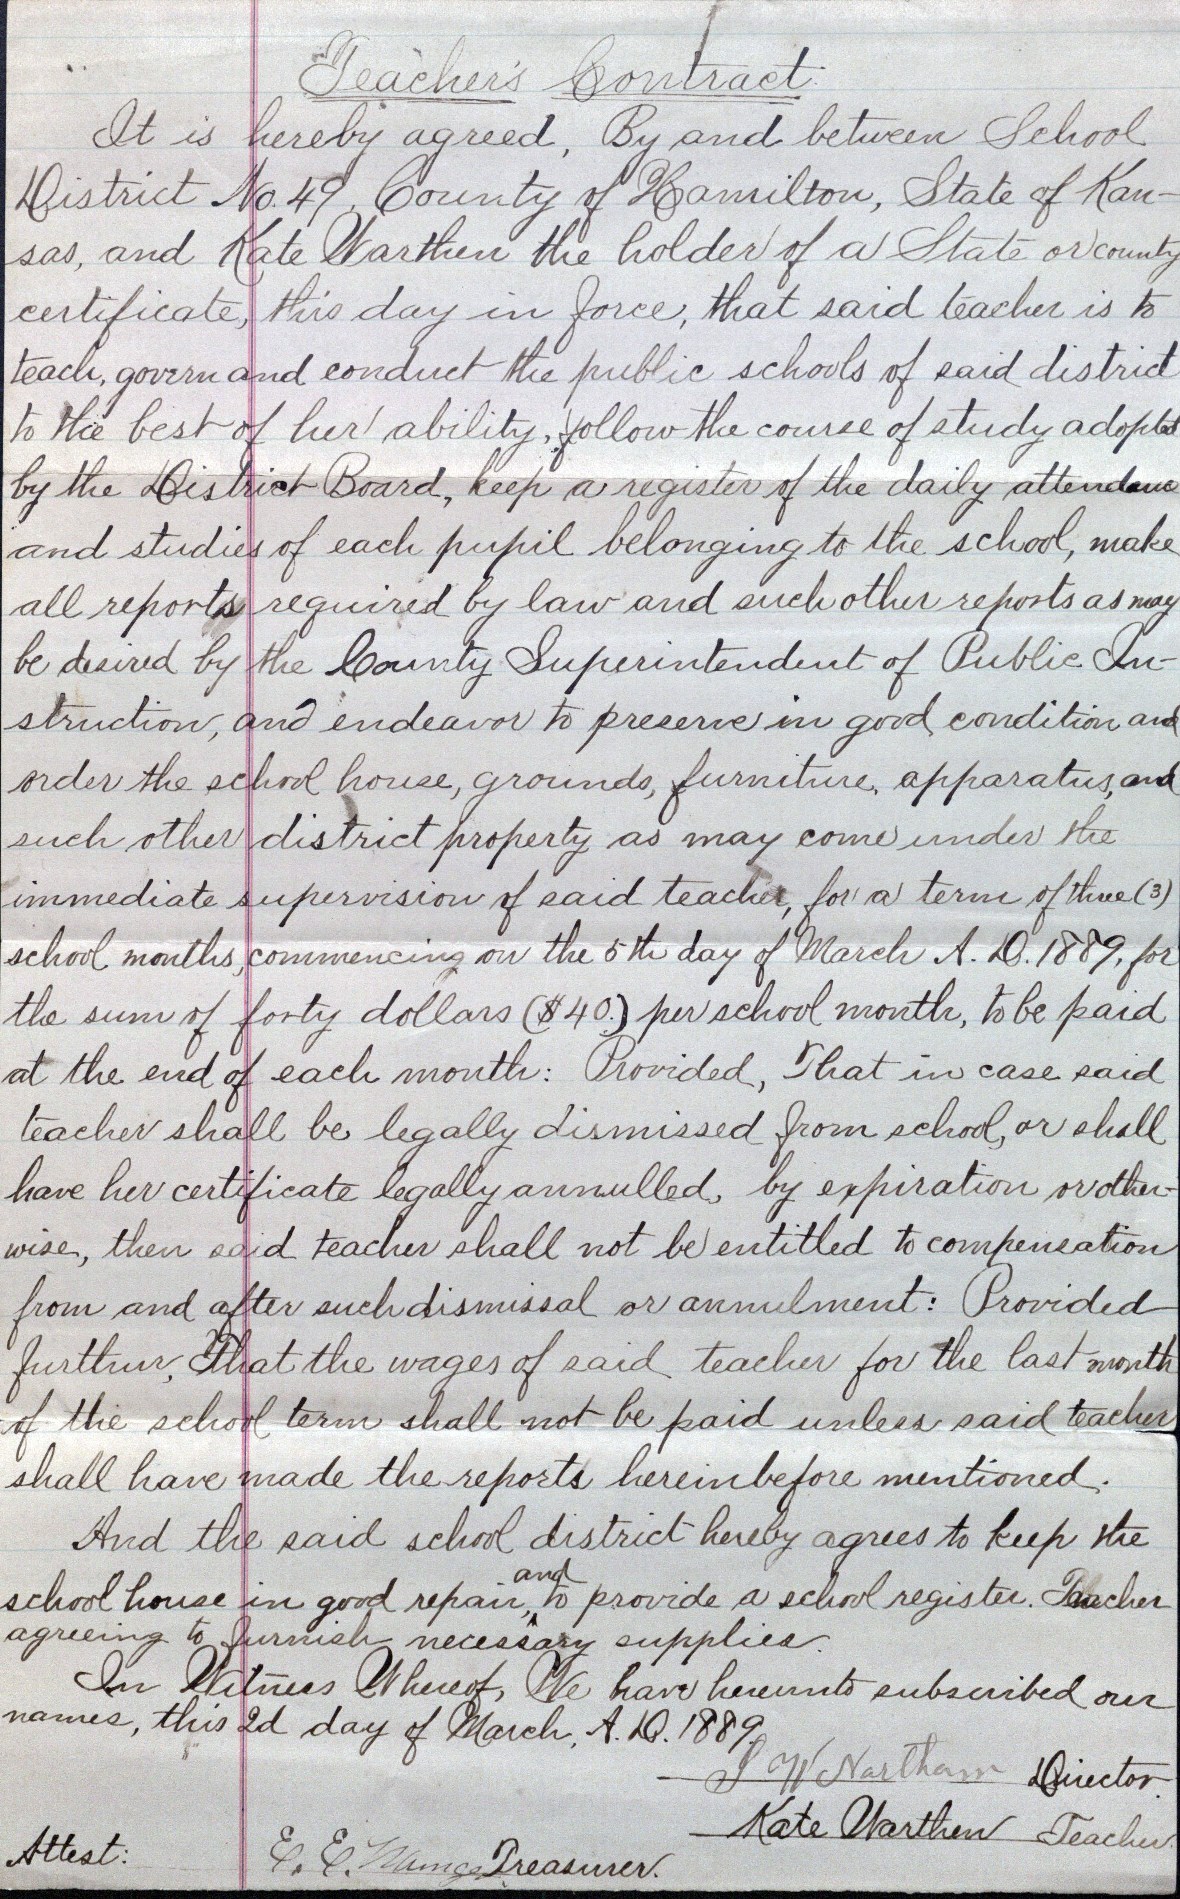 Teacher's Contract.
It is hereby agreed, By and between School
District No. 49, County of Hamilton, State of Kan-
sas, and Kate Warthen the holder of a State or county
certificate, this day in force, that said teacher is to
teach, govern and conduct the public schools of said district
to the best of her ability, follow the course of study adopted
by the District Board, keep a register of the daily attendance
and studies of each pupil belonging to the school, make
all reports required by law and such other reports as may
be desired by the County Superintendent of Public In-
struction, and endeavor to preserve in good condition and
order the school house, grounds, furniture, apparatus, and
such other district property as may come under the
immediate supervision of said teacher, for a term of three (3)
school months, commencing on the 5th day of March A.D. 1889, for
the sum of forty dollars ($40.) per school month, to be paid
at the end of each month: Provided, That in case said
teacher shall be legally dismissed from school, or shall
have her certificate legally annulled, by expiration or other-
wise, then said teacher shall not be entitled to compensation
from and after such dismissal or annulment: Provided
further, That the wages of said teacher for the last month
of the school term shall not be paid unless said teacher
shall have made the reports hereinbefore mentioned.
And the said school district hereby agrees to keep the
school house in good repair, and to provide a school register. Teacher
agreeing to furnish necessary supplies.
In Witness Whereof, We have hereunto subscribed our
names, this 2d day of March, A.D. 1889.
W Northam Director.
Kate Warthen Teacher.
Attest: E. E. Treasurer.